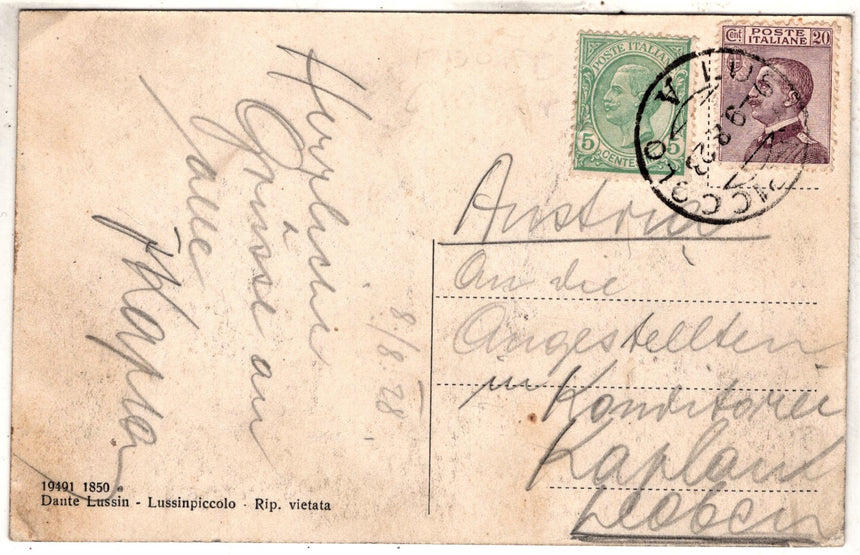 POSTE ITALIANE
5 5
CENTES
Cent. POSTE 20
ITALIANE
Herzliche
Grüsse an
alle
8./8. 28
Austria
An die
Angestellten
in Konditorei
Kaplan
Leoben
19491 1850
Dante Lussin - Lussinpiccolo - Rip. vietata